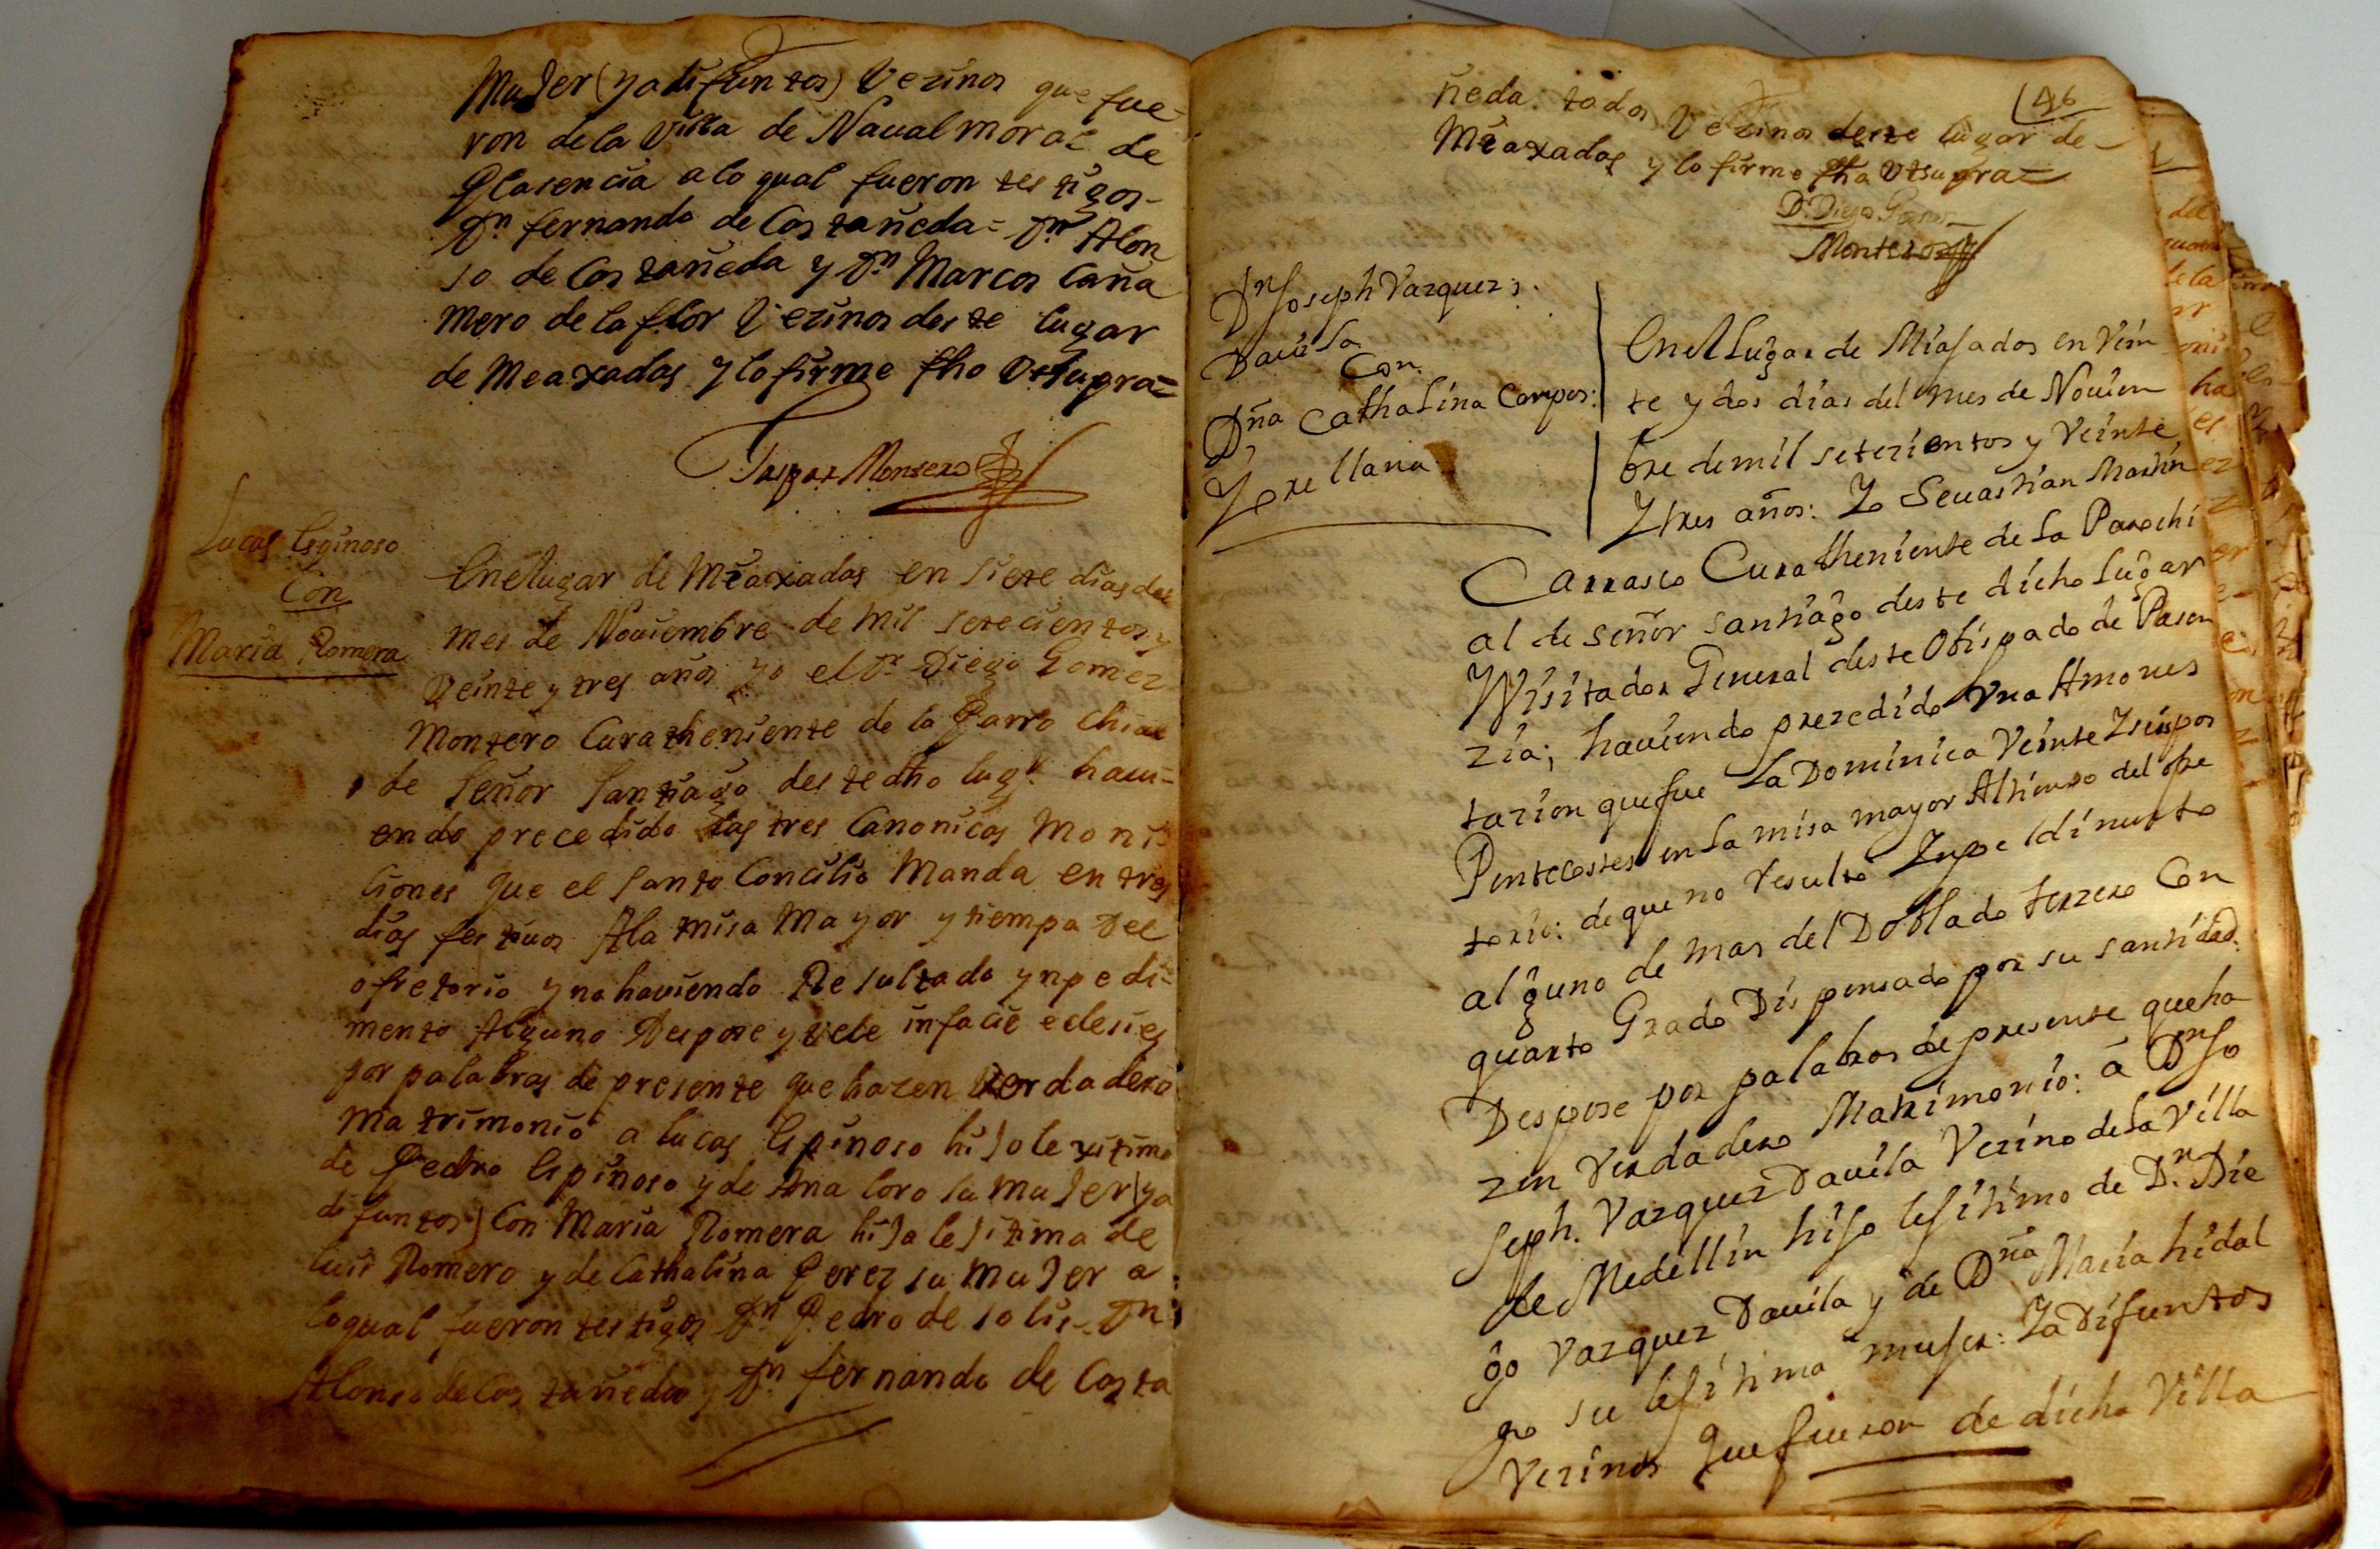 Mujer (ya difuntos) Vezinos que fue-
ron de la Villa de Naualmoral de
Plasencia a lo qual fueron testigos-
Dn fernando de Castañeda = Dn Alon
so de Castañeda y Dn Marcos Caña
mero de la flor Vezinos deste lugar
de Meaxadas y lo firme fho Vtsupra=
Gaspar Montero
Lucas Espinoso
Con
Maria Romera
En el lugar de Meaxadas en siete dias del
mes de Nouiembre de mil setecientos y
Veinte y tres años yo el Dr Diego Gomez
Montero Cura theniente de la Parrochial
de Señor Santiago deste dho lugr haui-
endo precedido las tres Canonicas Moni-
ciones que el Santo Concilio Manda en tres
dias festiuos A la misa Mayor y tiempo Del
ofretorio y no hauiendo Resultado ynpedi-
mento Alguno Despose y vele in facie eclesies
por palabras de presente que hazen Verdadero
matrimonio a lucas Espinoso hijo lexitimo
de Pedro Espinoso y de Ana loro su mujer (ya
difuntos) Con Maria Romera hija lejitima de
luis Romero y de Cathalina Perez su mujer a
lo qual fueron testigos Dn Pedro de solis - Dn
Alonso de Castañeda y Dn fernando de Casta
46
ñeda: todos Vezinos deste lugar de-
Meaxadas y lo firme fha Vtsupra=
Dr Diego Gomez
Montero
Dn Joseph Vazquez:
Dauila
Con
Dña Cathalina Campos:
Y orellana
En el Lugar de Miajadas en Vein
te y dos dias del mes de Nouiem
bre de mil setezientos y Veinte
Y tres años: Yo Seuastian Martin
Carrasco Cura theniente de la Parochi
al de señor santiago deste dicho lugar
Visitador General deste Obispado de Pasen
zia; hauiendo prezedido Vna Amones
tazion que fue la Dominica Veinte Y seis pos
Pentecostes en la misa mayor Al tienpo del ofre
torio: de que no resulto Ynpedimento
alguno de mas del Doblado terzero Con
quarto Grado Dispensado por su santidad:
Despose por palabras de presente que ha
zen Verdadero Matrimonio: á Dn Jo
seph. Vazquez Dauila Vezino de la Villa
de Medellin hijo lejitimo de Dn. Die
go Vazquez Dauila y de Dña Maria hidal
go su lejitima mujer: Ya Difuntos
Vezinos que fueron de dicha Villa